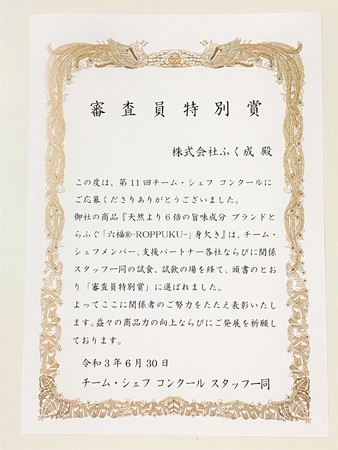 審査員特別賞
株式会社ふく成 殿
この度は、第11回チーム・シェフ コンクールに
ご応募くださりありがとうございました。
御社の商品『天然より6倍の旨味成分 ブランドと
らふぐ「六福®-ROPPUKU-」身欠き』は、チーム・
シェフメンバー、支援パートナー各社ならびに関係
スタッフ一同の試食、試飲の場を経て、頭書のとお
り「審査員特別賞」に選ばれました。
よってここに関係者のご努力をたたえ表彰いたし
ます。益々の商品力の向上ならびにご発展を祈願し
ております。
令和3年6月30日
チーム・シェフ コンクール スタッフ一同